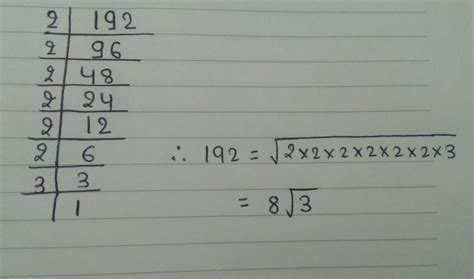 2 | 192
2 | 96
2 | 48
2 | 24
2 | 12
2 | 6
3 | 3
| 1
∴ 192 = √2×2×2×2×2×2×3
= 8√3